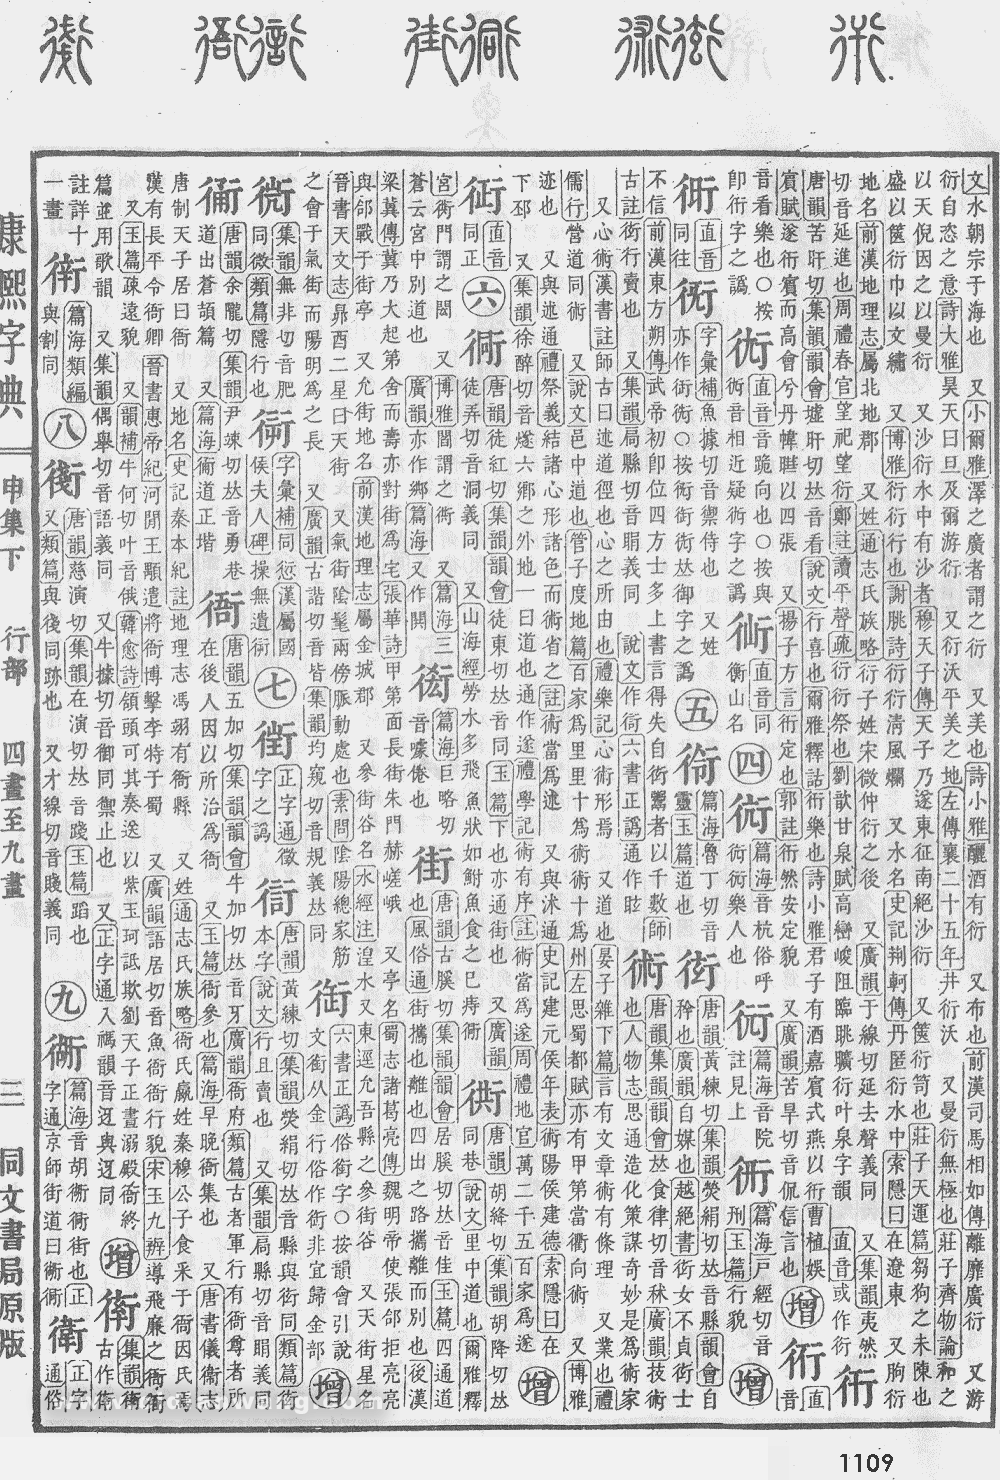 文水朝宗于海也 又小爾雅澤之廣者謂之衍 又美也詩小雅釃酒有衍 又布也前漢司馬相如傳離靡廣衍 又游
衍自恣之意詩大雅昊天曰旦及爾游衍 又衍沃平美之地左傳襄二十五年井衍沃 又曼衍無極也莊子齊物論和之
以天倪因之以曼衍 又沙衍水中有沙者穆天子傳天子乃遂東征南絕沙衍 又篋衍笥也莊子天運篇芻狗之未陳也
盛以篋衍巾以文繡 又博雅衍衍行也謝朓詩衍衍清風爛 又水名史記荆軻傳丹匿衍水中索隱曰在遼東 又朐衍
地名前漢地理志屬北地郡 又姓通志氏族略衍子姓宋微仲衍之後 又廣韻于線切延去聲義同 又集韻夷然
切音延進也周禮春官望祀望衍鄭註讀平聲疏衍衍祭也劉歆甘泉賦高巒峻阻臨眺曠衍叶泉字韻 直音或作衍
衎
唐韻苦旰切集韻韻會墟旰切𠀤音看說文行喜也爾雅釋詁衎樂也詩小雅君子有酒嘉賓式燕以衎曹植娛
賓賦遂衎賓而高會兮丹幃曄以四張 又揚子方言衎定也郭註衎然安定貌 又廣韻苦旱切音侃信言也 增
音看樂也○按
卽衎字之譌
直音音跪向也○按與
音相近疑字之譌
直音同
衡山名
四
篇海音杭俗呼
樂人也
篇海音院
註見上
篇海戸經切音
刑玉篇行貌
增
直音
同往
字彙補魚據切音禦侍也 又姓
亦作○按𠀤御字之譌
五
篇海魯丁切音
靈玉篇道也
衒
唐韻黃練切集韻熒絹切𠀤音縣韻會自
矜也廣韻自媒也越絕書衒女不貞衒士
不信前漢東方朔傳武帝初卽位四方士多上書言得失自衒鬻者以千數師
古註衒行賣也 又集韻局縣切音睊義同 說文作衙六書正譌通作眩
術
唐韻集韻韻會𠀤食律切音秫廣韻技術
也人物志思通造化策謀奇妙是為術家
又心術漢書註師古曰述道徑也心之所由也禮樂記心術形焉 又道也晏子雜下篇言有文章術有條理 又業也禮
儒行營道同術 又說文邑中道也管子度地篇百家爲里里十爲術術十爲州左思蜀都賦亦有甲第當衢向術 又博雅
迹也 又與述通禮祭義結諸心形諸色而術省之註術當爲述 又與沭通史記建元侯年表術陽侯建德索隱曰在
下邳 又集韻徐醉切音燧六鄕之外地一曰道也通作遂禮學記術有序註術當爲遂周禮地官萬二千五百家爲遂 增
直音
同正
六
衕
唐韻徒紅切集韻韻會徒東切𠀤音同玉篇下也亦通街也 又廣韻
徒弄切音洞義同 又山海經勞水多飛魚狀如鮒魚食之已痔衕
衖
唐韻胡絳切集韻胡降切𠀤
同巷說文里中道也爾雅釋
宮衖門謂之閎 又博雅閻謂之衖 又篇海
蒼云宮中別道也 廣韻亦作鄕篇海又作閧
三
篇海巨略切
音噱倦也
街
唐韻古膎切集韻韻會居膎切𠀤音佳玉篇四通道
也風俗通街攜也離也四出之路攜離而別也後漢
梁冀傳冀乃大起第舍而壽亦對街爲宅張華詩甲第面長街朱門赫嵯峨 又亭名蜀志諸葛亮傳魏明帝使張郃拒亮亮
與郃戰于街亭 又允街地名前漢地理志屬金城郡 又參街谷名水經注湟水又東逕允吾縣之參街谷 又天街星名
晉書天文志昴酉二星曰天街 又氣街陰髦兩傍脈動處也素問陰陽總家筋
之會于氣街而陽明爲之長 又廣韻古諧切音皆集韻均窺切音規義𠀤同
六書正譌俗銜字○按韻會引說
文銜从金行俗作非宜歸金部
增
集韻無非切音肥
同微類篇隱行也
字彙補同愆漢屬國
侯夫人碑操無遺
七
正字通徵
字之譌
唐韻黃練切集韻熒絹切𠀤音縣與衒同類篇衒
本字說文行且賣也 又集韻局縣切音睊義同
唐韻余隴切集韻尹竦切𠀤音勇巷
道出蒼頡篇 又篇海道正堦
衙
唐韻五加切集韻韻會牛加切𠀤音牙廣韻衙府類篇古者軍行有衙尊者所
在後人因以所治爲衙 又玉篇衙參也篇海早晚衙集也 又唐書儀衞志
唐制天子居曰衙 又地名史記秦本紀註地理志馮翊有衙縣 又姓通志氏族略衙氏嬴姓秦穆公子食釆于衙因氏焉
漢有長平令衙卿晉書惠帝紀河閒王顒遣將衙博擊李特于蜀 又廣韻語居切音魚衙衙行貌宋玉九辨導飛廉之衙衙
又玉篇疎遠貌 又韻補牛何切叶音俄韓愈詩領頭可其奏送以紫玉珂詆欺劉天子正晝溺殿衙終
篇𠀤用歌韻 又集韻偶舉切音語義同 又牛據切音御同禦止也 又正字通入禡韻音迓與迓同
增
集韻衞
古作
註詳十
一畫
篇海類編
與割同
八
唐韻慈演切集韻在演切𠀤音踐玉篇蹈也
又類篇與後同跡也 又才線切音賤義同
九
篇海音胡衕街也正
字通京師街道曰衕
衛
正字
通俗
康熙字典
申集下 行部 四畫至九畫
三
同文書局原版
1109